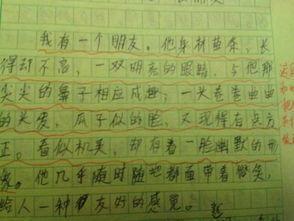 我有一个朋友。他身材苗条，长
得却不高，一双明亮的眼睛，与他那
尖尖的鼻子相应成趣，一头卷卷曲曲
的头发，瓜子似的脸，又现得有点方
正。看似机灵，却有着一脸幽默的形
象。他几乎随时随地都面带着微笑，
给人一种友好的感觉。